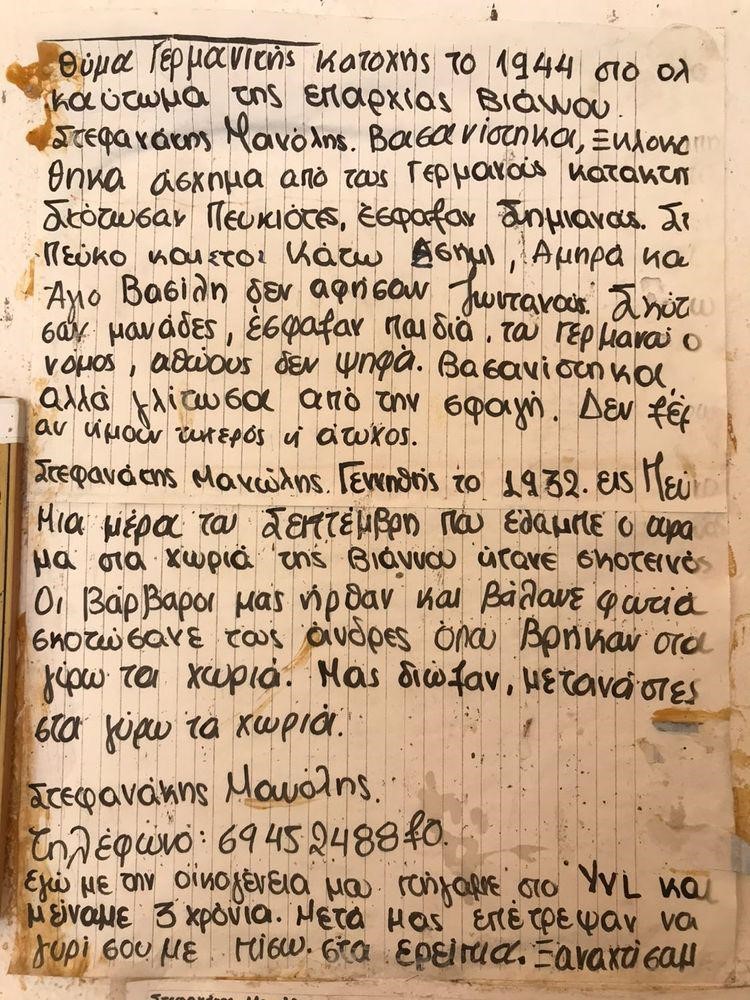 Θύμα Γερμανικής κατοχής το 1944 στο ολ
καύτωμα της επαρχίας Βιάννου.
Στεφανάκης Μανόλης. Βασανίστηκα, Ξυλοκο
θηκα άσχημα από τους Γερμανούς κατακτη
Σκότωσαν Πευκιότες, έσφαξαν Σημιανούς. Στ
Πεύκο και στοι Κάτω Σήμι, Αμηρά κα
Άγιο Βασίλη δεν αφήσαν ζωντανούς. Σκότ
σαν μανάδες, έσφαξαν παιδιά, του Γερμανού ο
νόμος, αθώους δεν ψηφά. Βασανίστηκα,
αλλά γλίτωσα από την σφαγή. Δεν ξέρ
αν ύμουν τυχερός ή άτυχος.
Στεφανάκης Μανώλης. Γεννηθής το 1932. εις Πεύ
Μια μέρα του Σεπτέμβρη που έλαμπε ο ουρα
μα στα χωριά της Βιάννου ύτανε σκοτεινός
Οι βάρβαροι μας ήρθαν και βάλανε φωτιά
σκοτώσανε τους άνδρες όπου βρήκαν στα
γύρω τα χωριά. Μας διώξαν, μετανάστες
στα γύρω τα χωριά.
Στεφανάκης Μανόλης.
Τηλέφωνο: 6945248870.
εγώ με την οικογένεια μου πήγαμε στο και
μείναμε 3 χρόνια. Μετά μας επέτρεψαν να
γυρίσουμε πίσω. στα ερείπια. Ξαναχτίσαμ